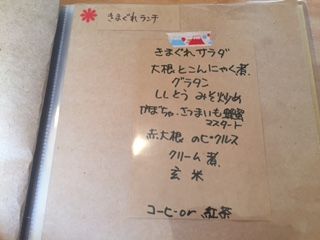 きまぐれランチ
きまぐれサラダ
大根とこんにゃく煮
グラタン
ししとう みそ炒め
かぼちゃ、さつまいも蜂蜜
マスタード
赤大根 のピクルス
クリーム煮
玄米
コーヒーor 紅茶